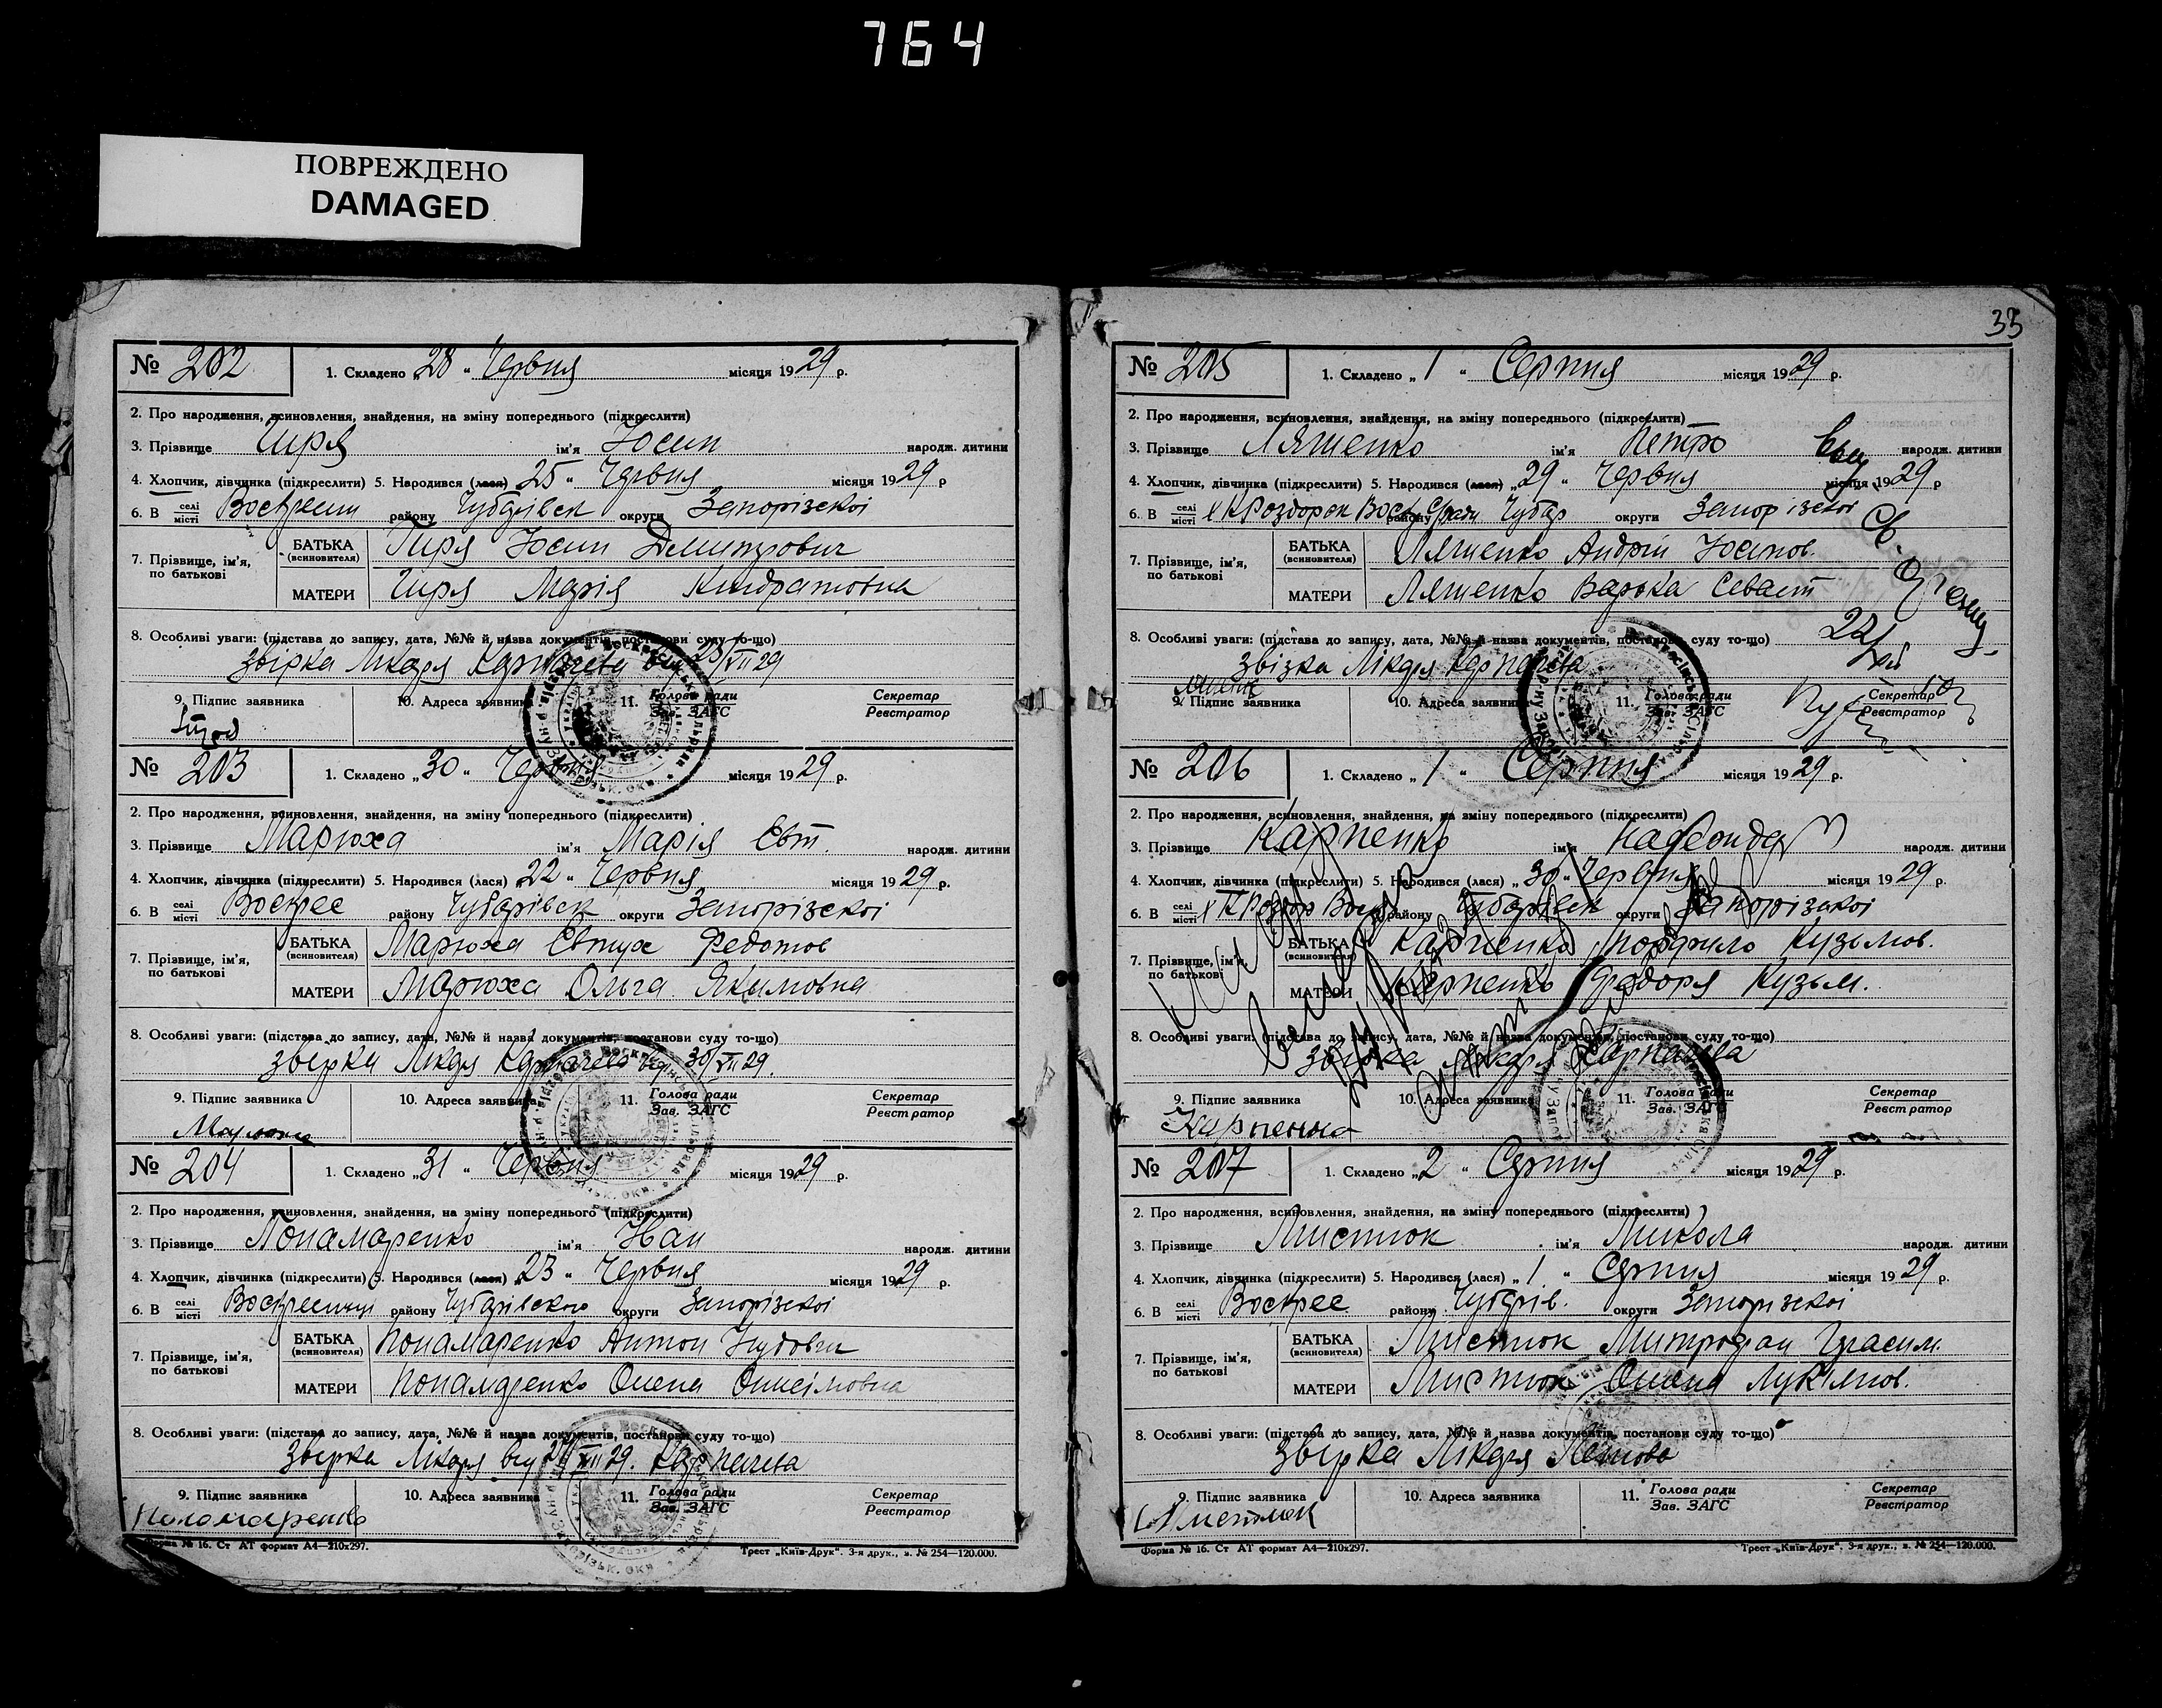 764
ПОВРЕЖДЕНО
DAMAGED
№ 202 1. Складено „28" Червня місяця 1929 р.
2. Про народження, всиновлення, знайдення, на зміну попереднього (підкреслити)
3. Прізвище Гиря ім'я Йосип народж. дитини
4. Хлопчик, дівчинка (підкреслити) 5. Народився (лася) 25" Червня місяця 1929 р
6. В селі місті району Чубарівськ округи Запорізскоі
7. Прізвище, ім'я, по батькові
БАТЬКА (всиновителя) Гиря Йосип Демитрович
МАТЕРИ Гиря Марія Киндратовна
8. Особливі уваги: (підстава до запису, дата, №№ й назва документів, постанови суду то-що)
Звірка Лікаря Карпачева від 28/VII 29
9. Підпис заявника 10. Адреса заявника 11. Голова ради Зав. ЗАГС Секретар Реєстратор
№ 203 1. Складено „30" Червня місяця 1929 р.
2. Про народження, всиновлення, знайдення, на зміну попереднього (підкреслити)
3. Прізвище Марюха ім'я Марія Евт. народж. дитини
4. Хлопчик, дівчинка (підкреслити) 5. Народився (лася) „22" Червня місяця 1929 р.
6. В селі місті Воскрес району Чубарівськ округи Запорізскоі
7. Прізвище, ім'я, по батькові
БАТЬКА (всиновителя) Марюха Евтух Федотов
МАТЕРИ Марюха Ольга Якимовна
8. Особливі уваги: (підстава до запису, дата, №№ й назва документів, постанови суду то-що)
звірка Лікаря Карпачева від 30/VII 29.
9. Підпис заявника 10. Адреса заявника 11. Голова ради Зав. ЗАГС Секретар Реєстратор
Марюха
№ 204 1. Складено „31" Червня місяця 1929 р.
2. Про народження, всиновлення, знайдення, на зміну попереднього (підкреслити)
3. Прізвище Понамаренко ім'я Иван народж. дитини
4. Хлопчик, дівчинка (підкреслити) 5. Народився (лася) 23" Червня місяця 1929 р.
6. В селі місті району Чубарівского округи Запорізскоі
7. Прізвище, ім'я, по батькові
БАТЬКА (всиновителя) Понамаренко Антон
МАТЕРИ Понамаренко Олена Онисімовна
8. Особливі уваги: (підстава до запису, дата, №№ й назва документів, постанови суду то-що)
Звірка Лікаря від 29. Карпачева
9. Підпис заявника 10. Адреса заявника 11. Голова ради Зав. ЗАГС Секретар Реєстратор
Пономаренко
Форма № 16. Ст АТ формат А4—210х297. Трест „Київ-Друк". 3-я друк., з. № 254—120.000.
33
№ 205 1. Складено „1" Серпня місяця 1929 р.
2. Про народження, всиновлення, знайдення, на зміну попереднього (підкреслити)
3. Прізвище Ляшенко ім'я Петро народж. дитини
4. Хлопчик, дівчинка (підкреслити) 5. Народився (лася) „29" Червня місяця 1929 р
6. В селі місті району Чубар округи Запорізскоі
7. Прізвище, ім'я, по батькові
БАТЬКА (всиновителя) Ляшенко Андрій Йосипов.
МАТЕРИ Ляшенко Варька Севаст
8. Особливі уваги: (підстава до запису, дата, №№ й назва документів, постанови суду то-що)
Звізка Лікаря Карпачева
9. Підпис заявника 10. Адреса заявника 11. Голова ради Зав. ЗАГС Секретар Реєстратор
№ 206 1. Складено „1" Серпня місяця 1929 р.
2. Про народження, всиновлення, знайдення, на зміну попереднього (підкреслити)
3. Прізвище Карпенко ім'я народж. дитини
4. Хлопчик, дівчинка (підкреслити) 5. Народився (лася) „30" Червня місяця 1929 р.
6. В селі місті району Чубарівськ округи Запорізскоі
7. Прізвище, ім'я, по батькові
БАТЬКА (всиновителя) Карпенко Порфило Кузьмов.
МАТЕРИ Карпенко Федоря Кузьм.
8. Особливі уваги: (підстава до запису, дата, №№ й назва документів, постанови суду то-що)
Звірка Лікаря Карпачева
9. Підпис заявника 10. Адреса заявника 11. Голова ради Зав. ЗАГС Секретар Реєстратор
Карпенко
№ 207 1. Складено „2" Серпня місяця 1929 р.
2. Про народження, всиновлення, знайдення, на зміну попереднього (підкреслити)
3. Прізвище ім'я Микола народж. дитини
4. Хлопчик, дівчинка (підкреслити) 5. Народився (лася) „1" Серпня місяця 1929 р.
6. В селі місті Воскрес району Чубарів. округи Запорізскоі
7. Прізвище, ім'я, по батькові
БАТЬКА (всиновителя) Митрофан Герасим.
МАТЕРИ Олена Лукʼянов.
8. Особливі уваги: (підстава до запису, дата, №№ й назва документів, постанови суду то-що)
Звірка Лікаря
9. Підпис заявника 10. Адреса заявника 11. Голова ради Зав. ЗАГС Секретар Реєстратор
Форма № 16. Ст АТ формат А4—210х297. Трест „Київ-Друк". 3-я друк., з. № 254—120.000.